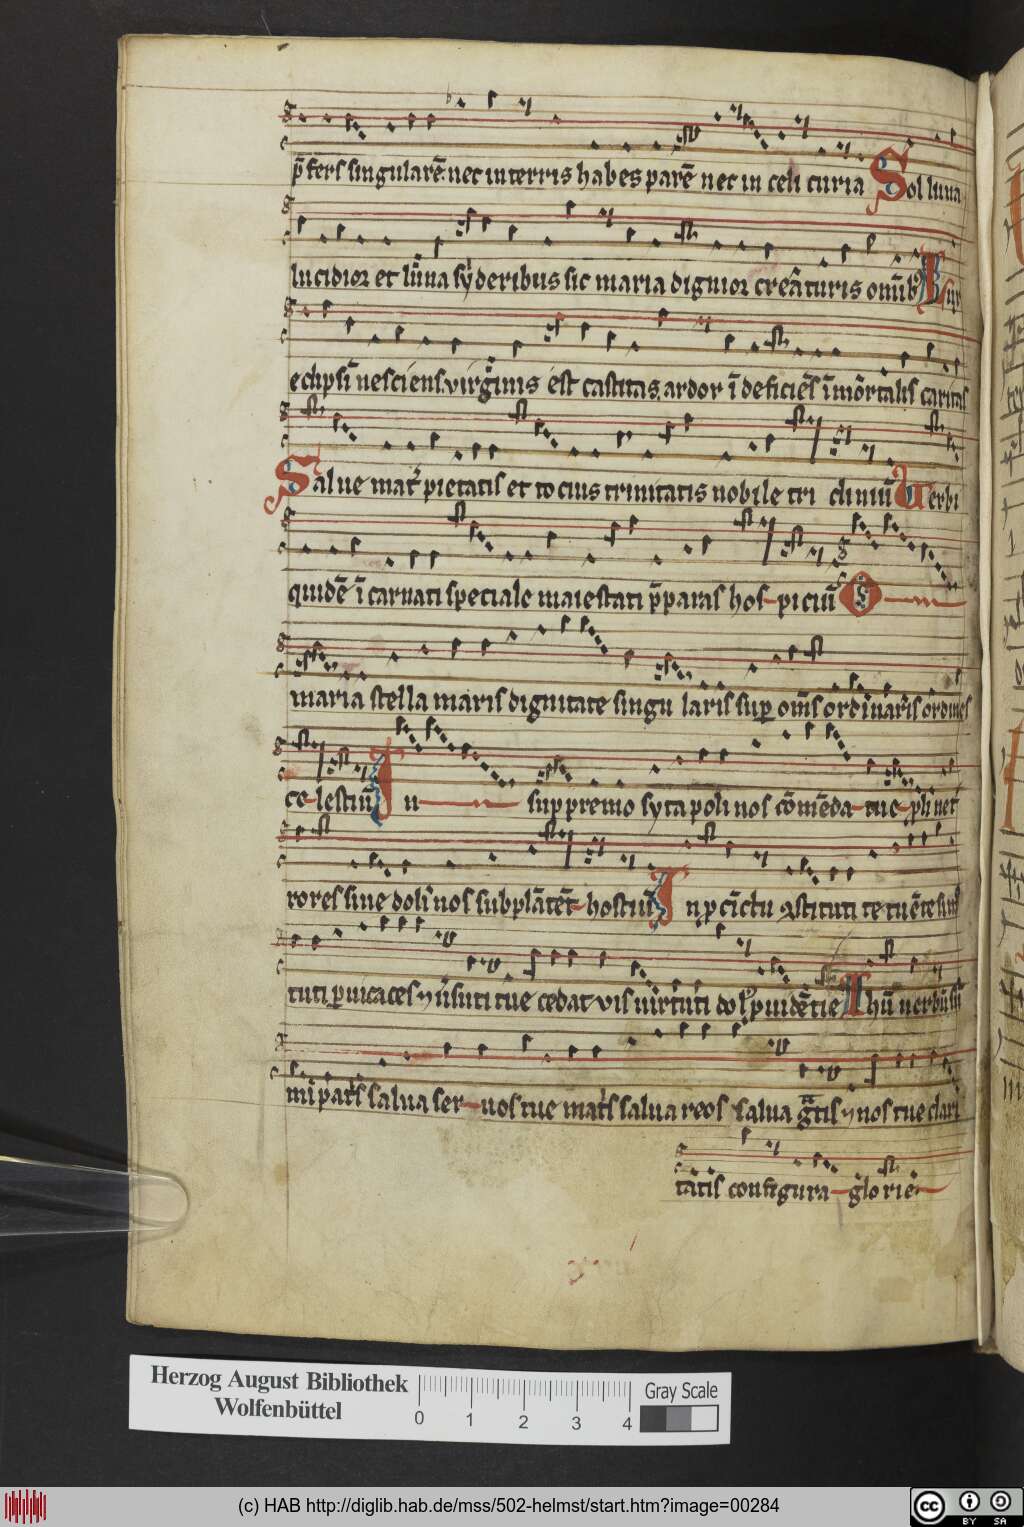 p̄fers singularē nec in terris habes parē nec in celi curia Sol luna
lucidior et luna syderibus sic maria dignior creāturis omīb Lux
eclipsī nesciens virginis est castitas ardor ī deficiēs īmōrtalis caritas
Salue mat pietatis et tocius trinitatis nobile tri cliniū Verbi
quidē ī carnati speciale maiestati p̄paras hospiciū O
maria stella maris dignitate singu laris sup om̄s ordinaris ordines
celestiū In suppremo syta poli nos cōmēda tue pli net
rores sine doli nos subplātēt hostiū In p cīctu
tuti puicaces uīsuti tue cedat vis uirtuti doli puidētie Ihū uerbū sū
mi patīs salua ser uos tue matīs salua reos salua gtis nos tue clari
tatis configura glorie
Herzog August Bibliothek
Wolfenbüttel
0 1 2 3 4
Gray Scale
(c) HAB http://diglib.hab.de/mss/502-helmst/start.htm?image=00284
cc BY SA